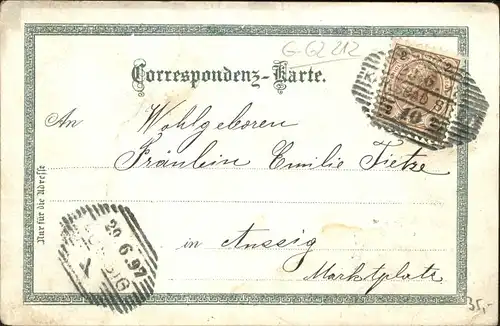 G-G2 212
Correspondenz-Karte.
An
Wohlgeboren
Fräulein Emilie Tietze
in Aussig
Marktplatz
Nur für die Adresse
10
20 6 97
35,-